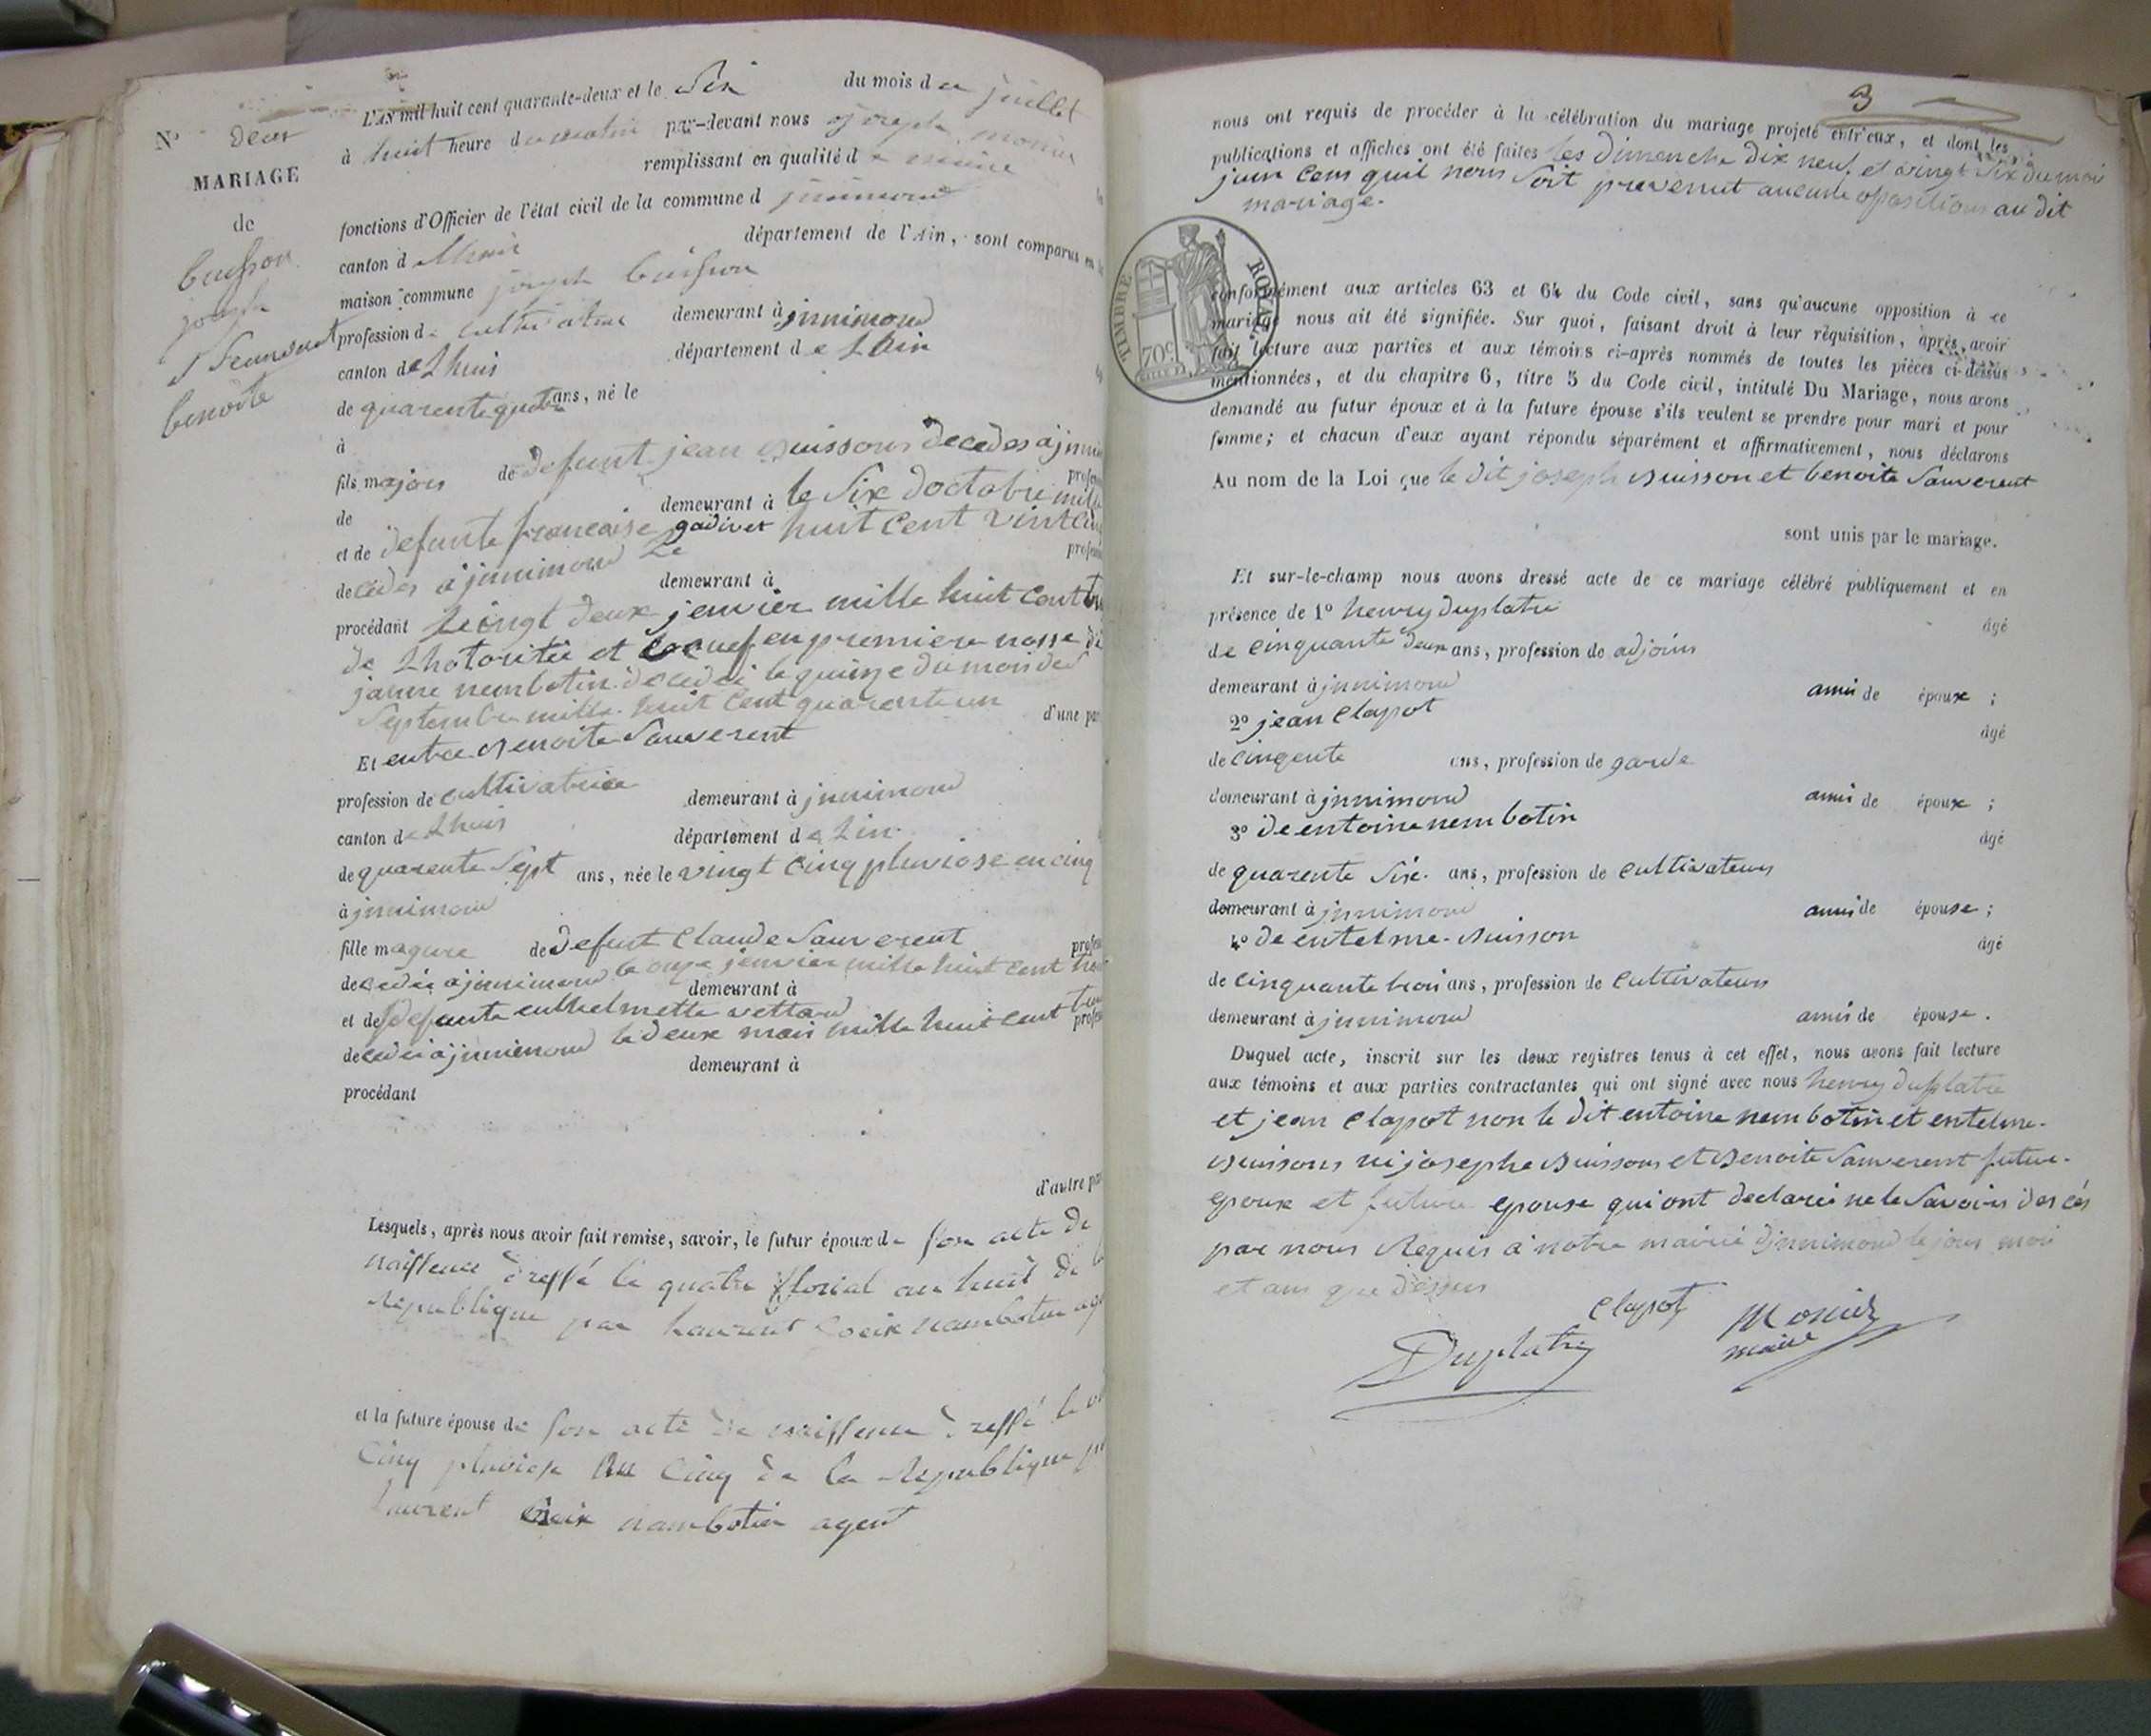 N° deux
MARIAGE
de
buisson
joseph
Sauverent
benoite
L'AN mil huit cent quarante-deux et le Six du mois de juillet
à huit heure du matin par-devant nous joseph monier
remplissant en qualité de maire
fonctions d'Officier de l'état civil de la commune d jnnimond
canton d Lhuis département de l'Ain, sont comparus en
maison commune joseph buisson
profession de cultivateur demeurant à jnnimond
canton de Lhuis département de L'Ain
de quarente quatre ans, né le
à
fils majors de defunt jean buissons decedes a jnni
de demeurant à le Six doctobre mille
et de defunte francoise gadivet huit Cent vintcin
decedes a jnnimond Le demeurant à
procédant Veingt deux janvier mille huit Cent
de Lhotoritée et en premiere nosse de
janne nembotin decedei le quinze du mois de
Septembre mille huit Cent quarente un d'une par
Et entre Benoite Sauverent
profession de cultivatrice demeurant à jnnimond
canton de Lhuis département de Lin
de quarente Sept ans, née le vingt Cinq pluviose en cinq
à jnnimond
fille magure de defunt Claude Sauverent profes
decedei a jnnimond le onze jenvier mille huit Cent
demeurant à
et de defunte enthelmette vettard
decedei a jnnimond le deux mais mille huit cent
demeurant à
procédant
d'autre pa
Lesquels, après nous avoir fait remise, savoir, le futur époux de son acte de
naissence dressé le quatre floréal an huit de la
Republique par Laurent Croix nambotin
et la future épouse de son acte de naissence dressé le
Cinq pluviose an Cinq de la Republique
Laurent Croix nambotin agent
3
nous ont requis de procéder à la célébration du mariage projeté entr'eux, et dont les
publications et affiches ont été faites les Dimenche dix neuf et vingt Six du moi
juin Cens quil nous Soit prevenut aucune opositions au dit
mariage.
TIMBRE ROYAL
70c
conformément aux articles 63 et 64 du Code civil, sans qu'aucune opposition à ce
mariage nous ait été signifiée. Sur quoi, faisant droit à leur réquisition, après avoir
fait lecture aux parties et aux témoins ci-après nommés de toutes les pièces ci-dessus
mentionnées, et du chapitre 6, titre 5 du Code civil, intitulé Du Mariage, nous avons
demandé au futur époux et à la future épouse s'ils veulent se prendre pour mari et pour
femme; et chacun d'eux ayant répondu séparément et affirmativement, nous déclarons
Au nom de la Loi que le dit joseph Buisson et benoite Sauverent
sont unis par le mariage.
Et sur-le-champ nous avons dressé acte de ce mariage célébré publiquement et en
présence de 1° henry duplatre
âgé
de cinquante deux ans, profession de adjoins
demeurant à jnnimond amis de époux ;
2° jean Clapot
âgé
de cinqente ans, profession de garde
demeurant à jnnimond amis de époux ;
3° de entoine nembotin
âgé
de quarente Six ans, profession de Cultivateurs
demeurant à jnnimond amis de épouse ;
4° de entelme Buisson
âgé
de cinquante trois ans, profession de Cultivateurs
demeurant à jnnimond amis de épouse .
Duquel acte, inscrit sur les deux registres tenus à cet effet, nous avons fait lecture
aux témoins et aux parties contractantes qui ont signé avec nous henry duplatre
et jean Clapot non le dit entoine nembotin et entelme
Buissons ni josephe Buissons et Benoite Sauverent future
epoux et future epouse qui ont declarei ne le Savoirs des ces
par nous Requis a notre mairie djnnimond le jour moi
et ans que dessus
Clapot Monier
Duplatre maire